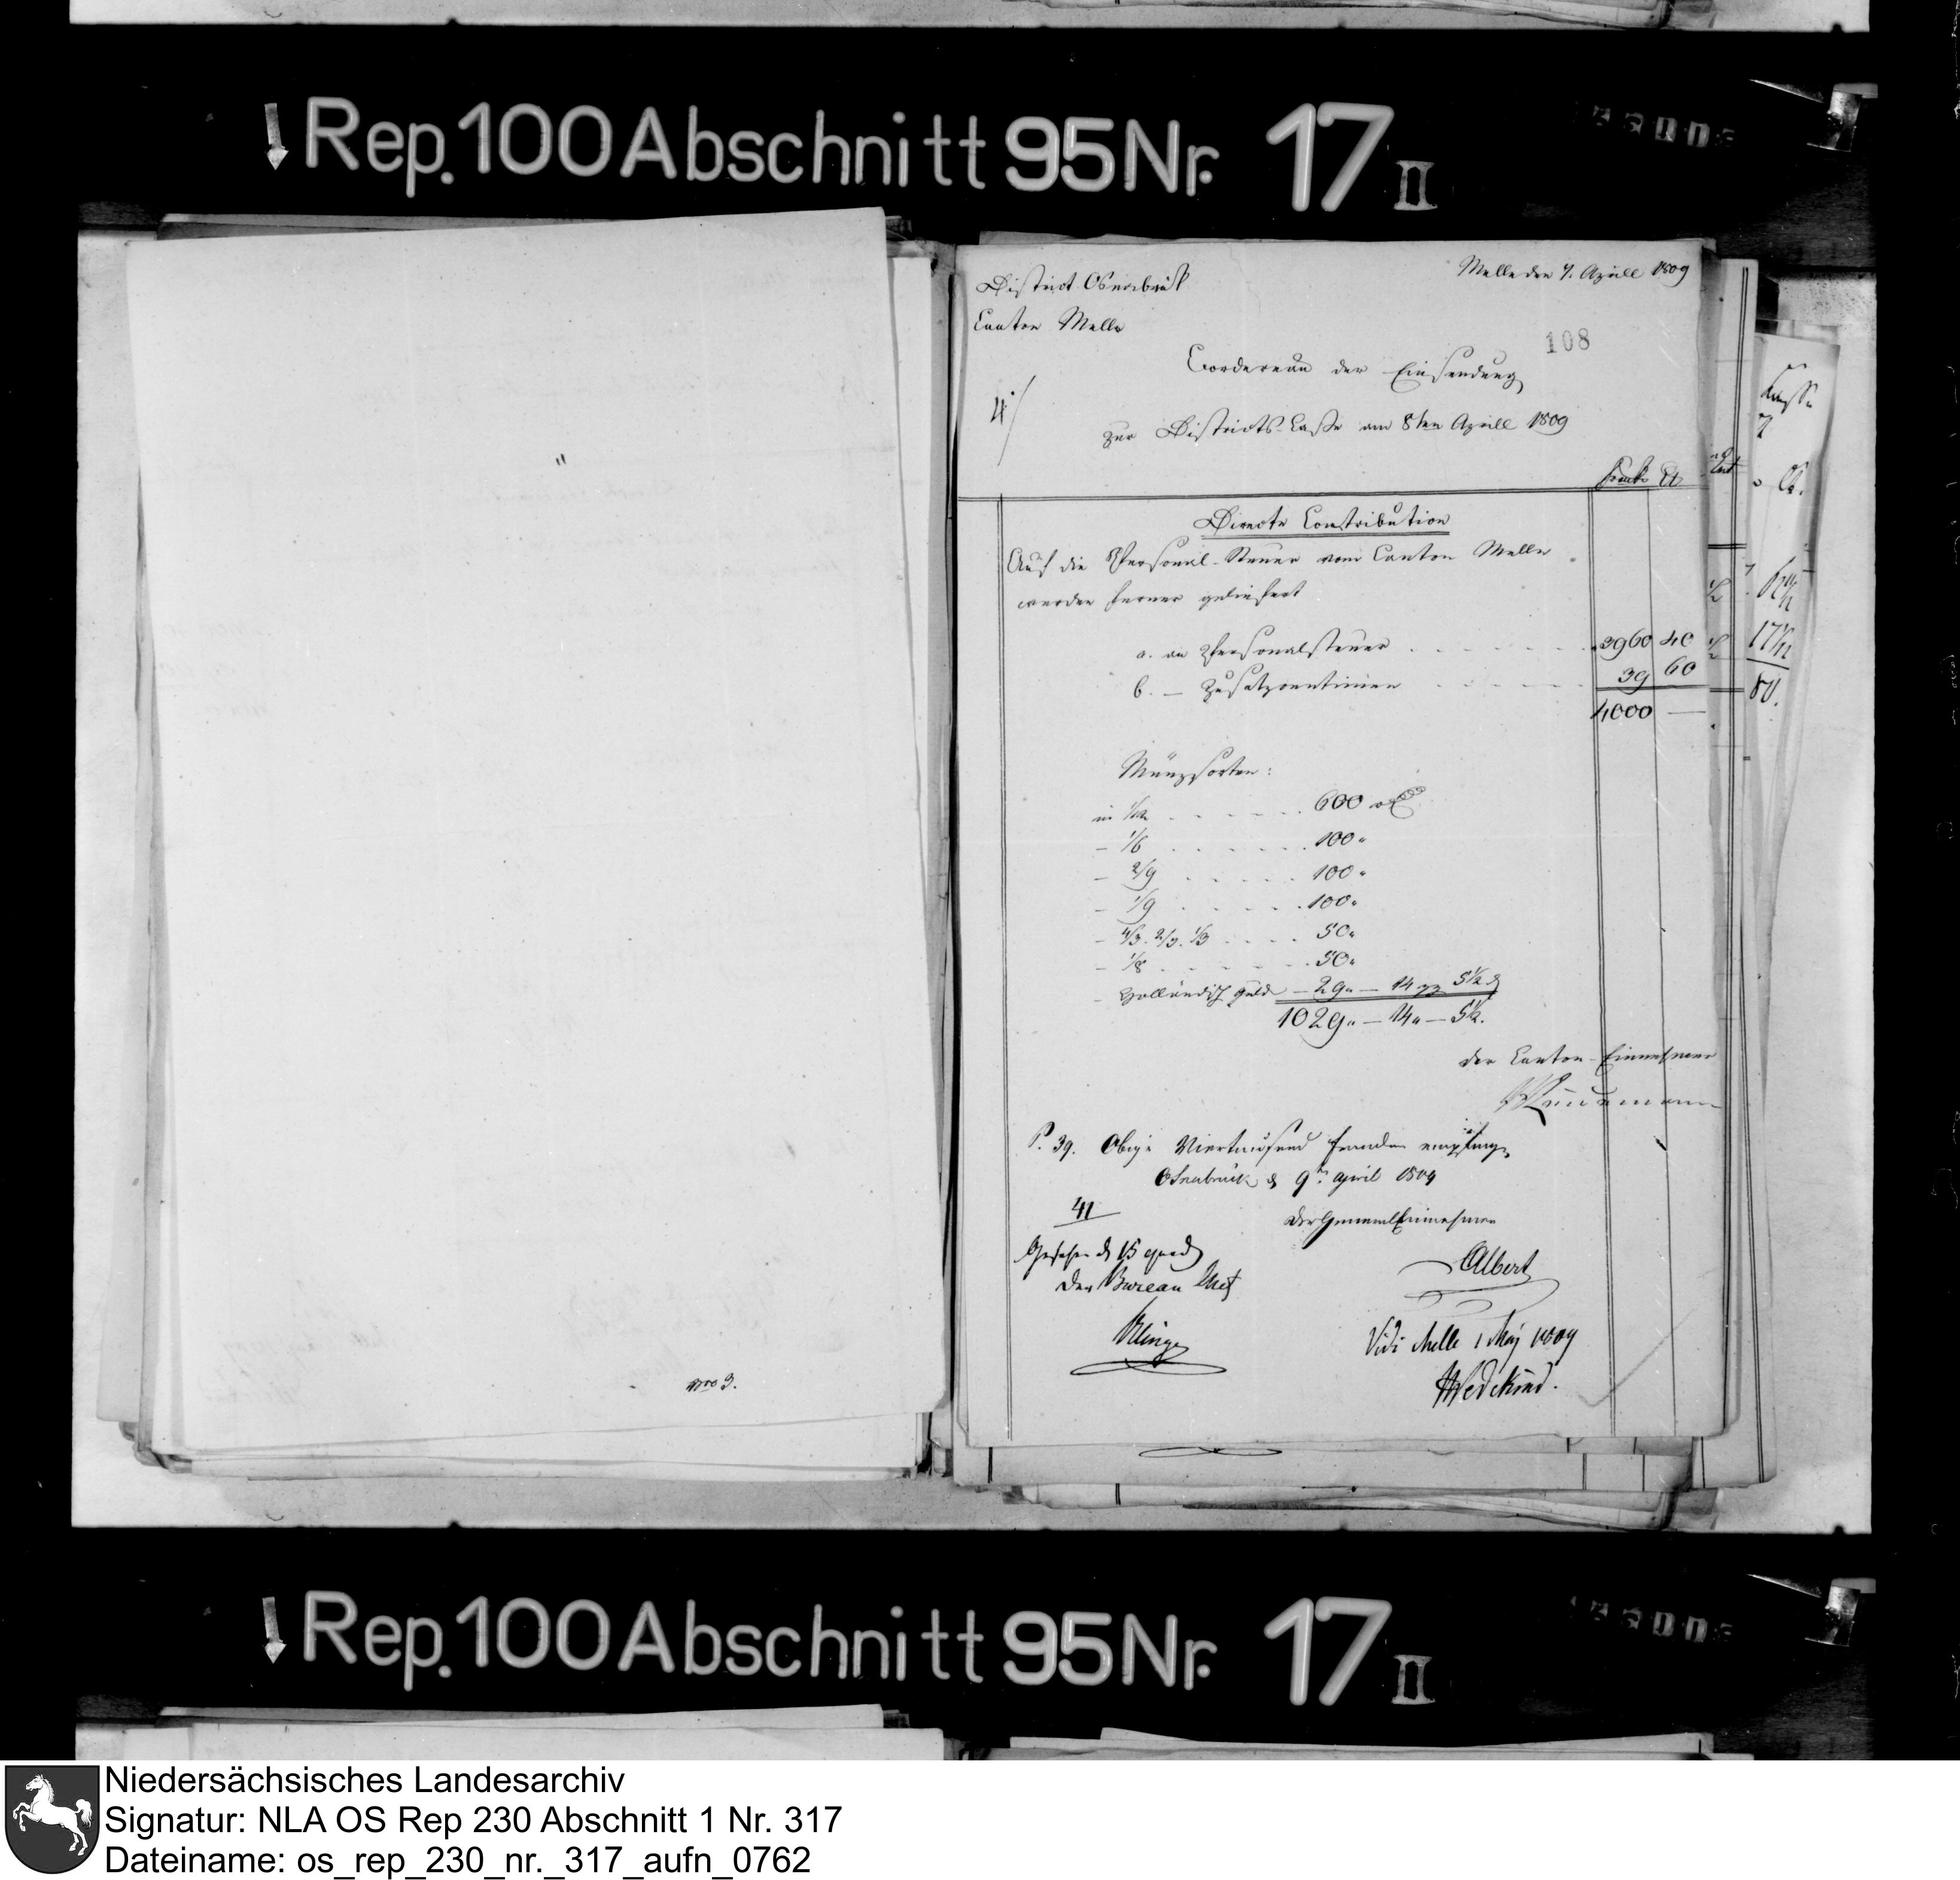 Rep. 100 Abschnitt 95 Nr. 17 II
District Osnabrük
Canton Melle
Melle den 7. Aprill 1809
108
4.
Bordereau der Einsendung
zur Districts-Casse am 8ten Aprill 1809
Frank. Ct
Directe Contribution
Auf die Personal-Steuer vom Canton Melle
werden ferner geliefert
a. an Personalsteuer . . . . . . 3960 40
b. — Zusatzcentimen . . . . . 39 60
4000 —
Münzsorten:
in 1/12 . . . . . . 600 rℓ
- 1/6 . . . . . . 100 "
- 2/9 . . . . . 100 "
- 1/9 . . . . . 100 "
- 4/3. 2/3. 1/3 . . . . 50 "
- 1/8 . . . . . . 50 "
- Holländisch Geld — 29 " — 14 gg 5 1/2 d
1029 " — 14 " — 5 1/2.
der Canton-Einnehmer
P. 39. Obige Viertausend Franken empfing
Osnabrück d 9ten April 1809
41
Der General Einnehmer
Albert
Gesehen d 15 
Der Bureau Chef
Klinge
Vidi Melle 1 May 1809
Wedekind.
nro 3.
Rep. 100 Abschnitt 95 Nr. 17 II
Niedersächsisches Landesarchiv
Signatur: NLA OS Rep 230 Abschnitt 1 Nr. 317
Dateiname: os_rep_230_nr._317_aufn_0762